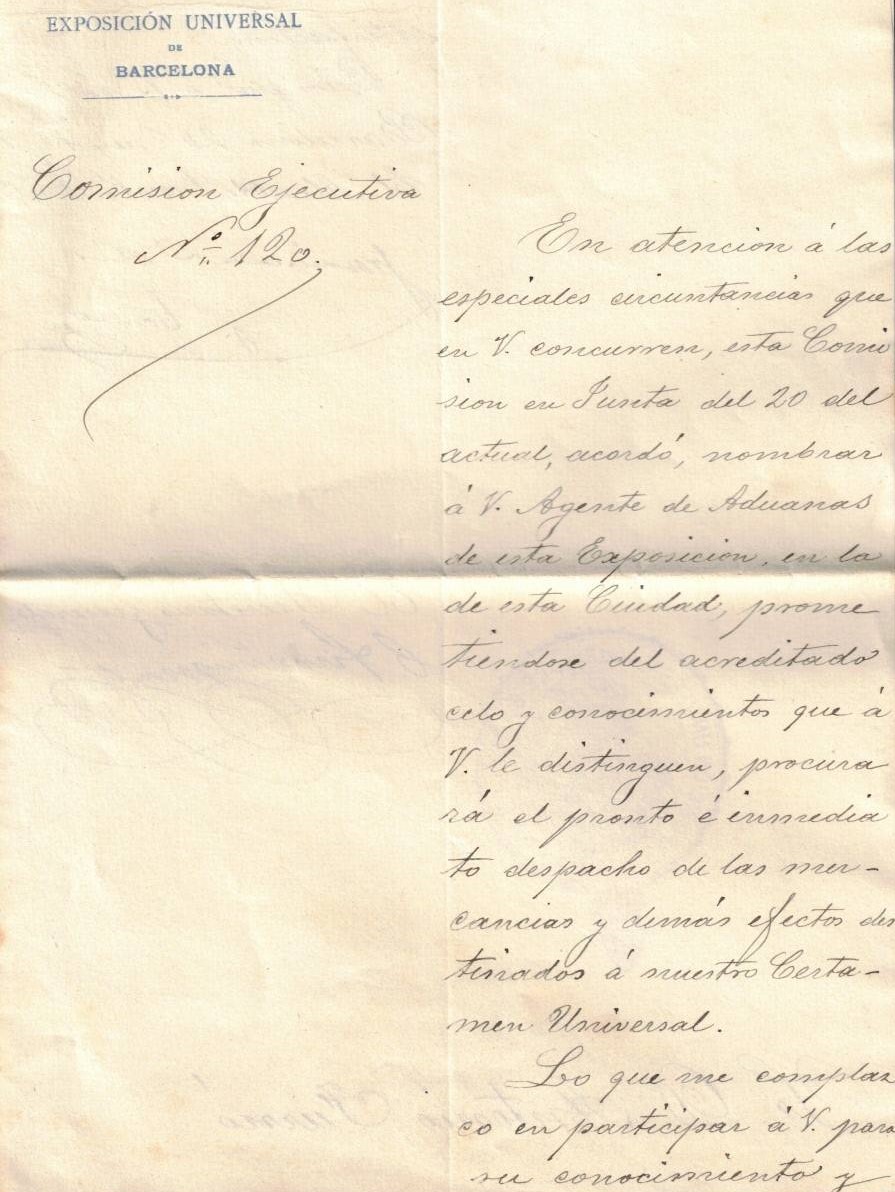 EXPOSICIÓN UNIVERSAL
DE
BARCELONA
Comision Ejecutiva
Nº 120.
En atencion á las
especiales circuntancias que
en V. concurren, esta Comi
sion en Junta del 20 del
actual, acordó, nombrar
á V. Agente de Aduanas
de esta Exposicion, en la
de esta Ciudad, prome
tiendose del acreditado
celo y conocimientos que á
V. le distinguen, procura
rá el pronto é inmedia
to despacho de las mer-
cancias y demás efectos des
tinados á nuestro Certa-
men Universal.
Lo que me complaz
co en participar á V. para
su conocimiento y